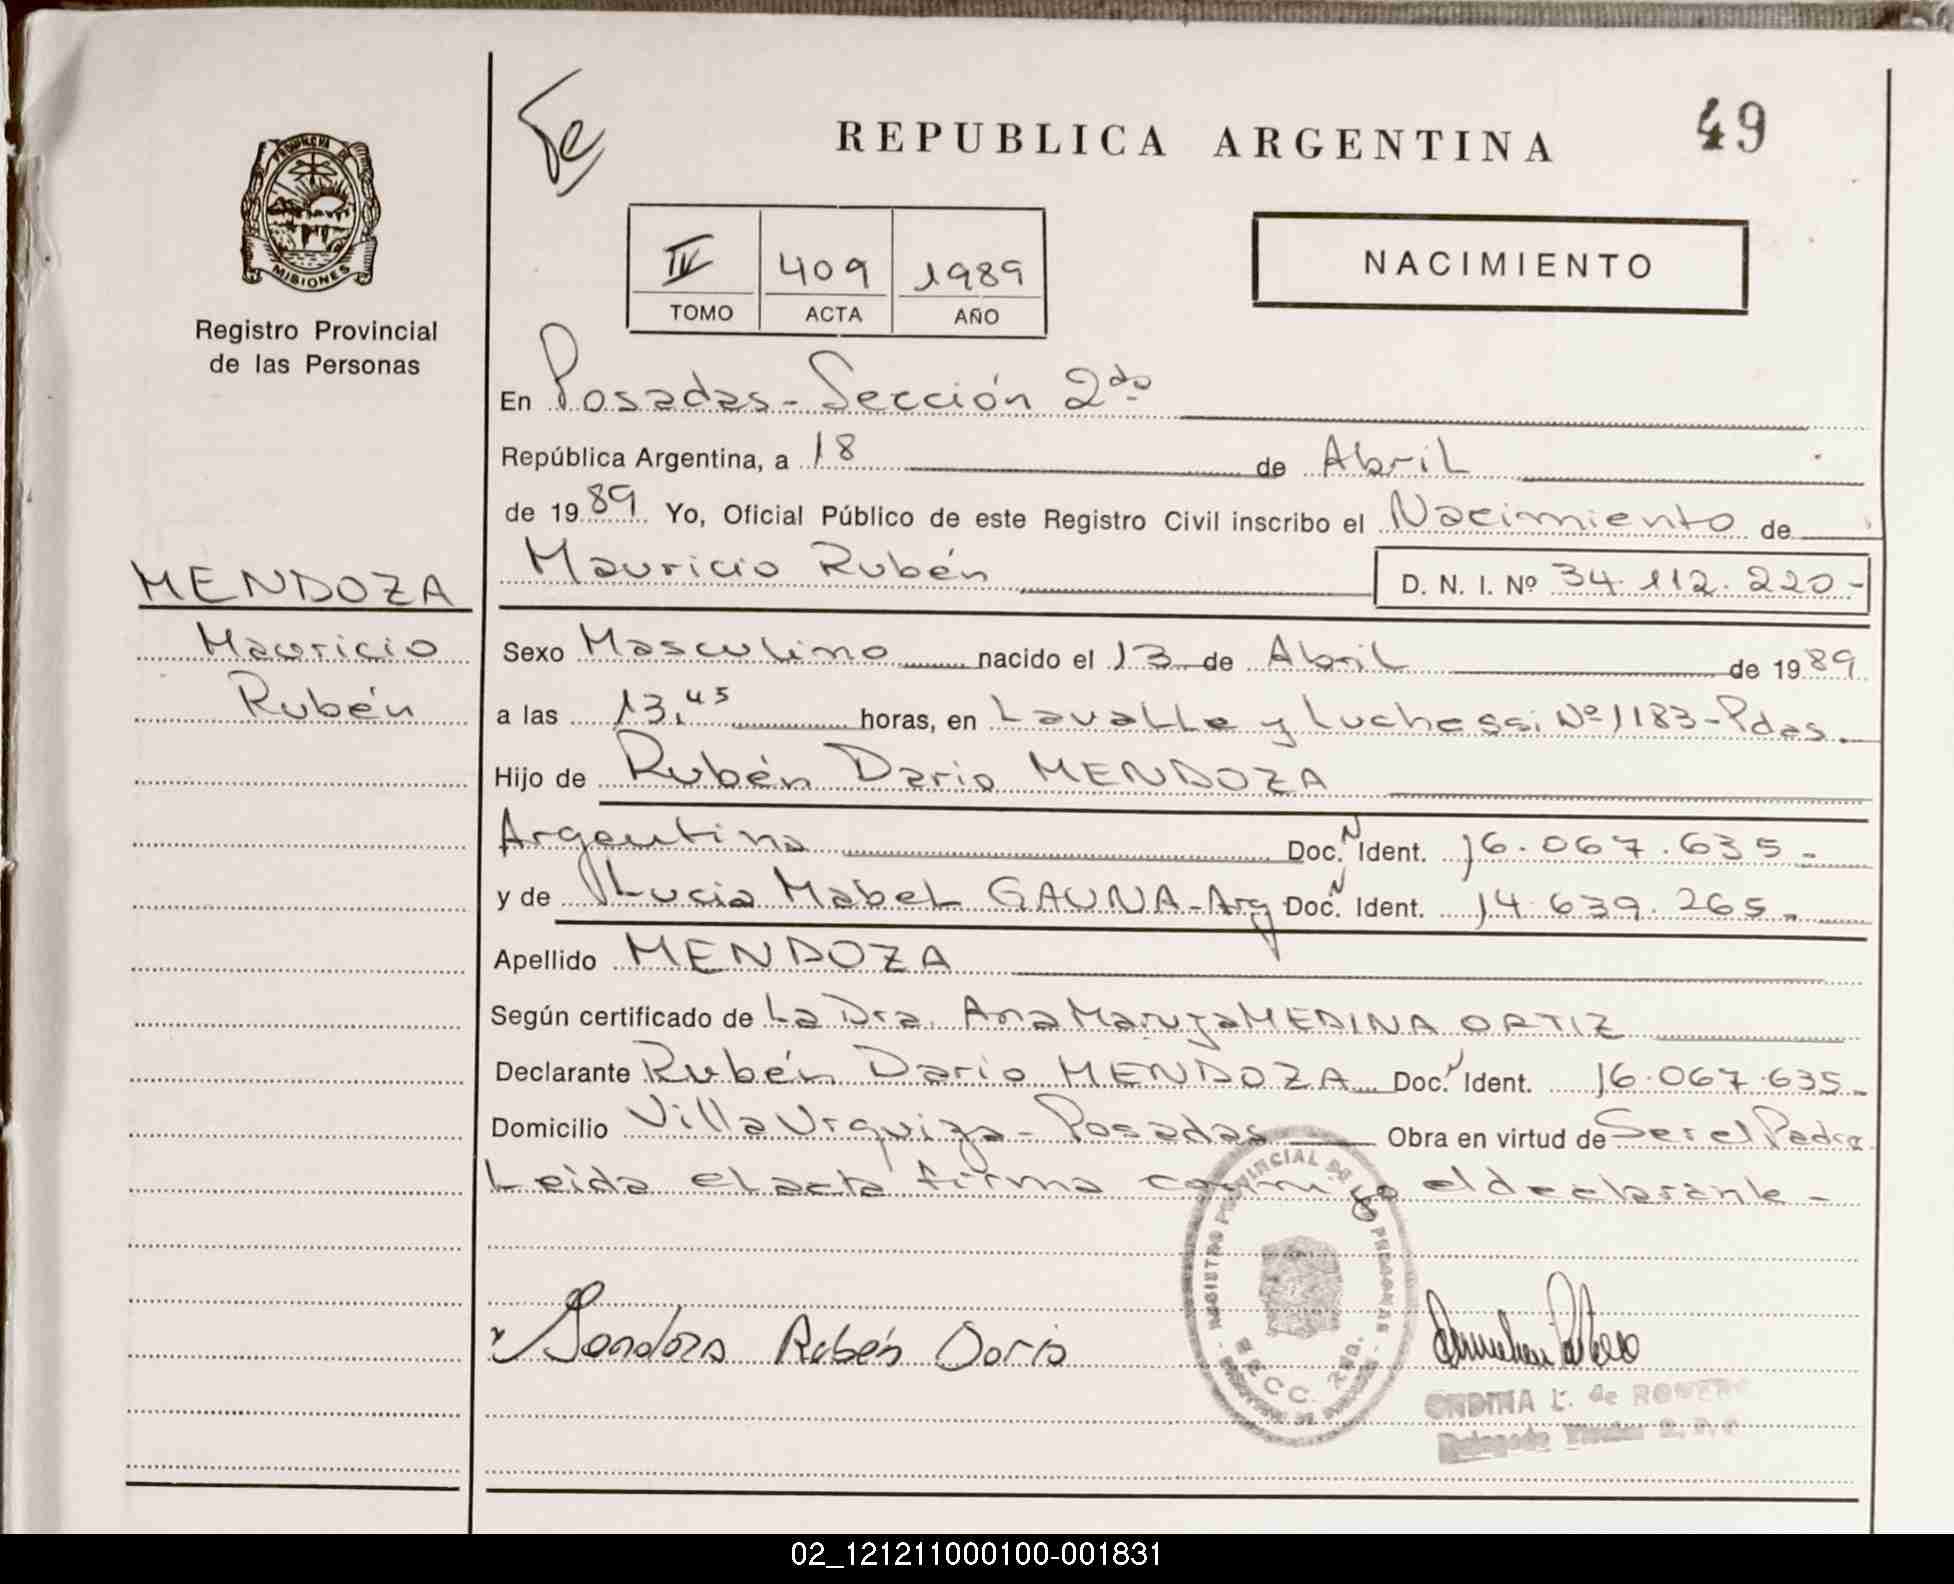 REPUBLICA ARGENTINA
49
PROVINCIA DE
MISIONES
Registro Provincial
de las Personas
IV 409 1989
TOMO ACTA AÑO
NACIMIENTO
En Posadas - Sección 2da
República Argentina, a 18 de Abril
de 1989 Yo, Oficial Público de este Registro Civil inscribo el Nacimiento de
MENDOZA
Mauricio
Rubén
Mauricio Rubén D. N. I. Nº 34.112.220-
Sexo Masculino nacido el 13 de Abril de 1989
a las 13,45 horas, en Lavalle y Luchessi Nº 1183-Pdas.
Hijo de Rubén Dario MENDOZA
Argentina Doc. N Ident. 16.067.635-
y de Lucia Mabel GAUNA-Arg Doc. N Ident. 14.639.265-
Apellido MENDOZA
Según certificado de La Dra. Ana MEDINA ORTIZ
Declarante Rubén Dario MENDOZA Doc. N Ident. 16.067.635-
Domicilio Villa Urquiza - Posadas Obra en virtud de Ser el Padre
Leida el acta firma conmigo el declarante -
Mendoza Rubén Dario
REGISTRO PROVINCIAL DE LAS PERSONAS
ONDINA L. de ROMERO
02_121211000100-001831